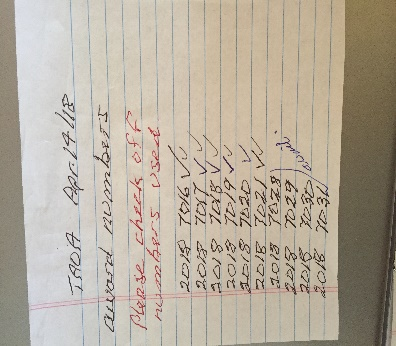 TADA Apr 14/18
award numbers
Please check off
numbers used
2018 7016 ✓✓
2018 7017 ✓✓
2018 7018 ✓✓
2018 7019 ✓✓
2018 7020 ✓
2018 7021 ✓✓
2018 7028
2018 7029
2018 7030
2018 7031